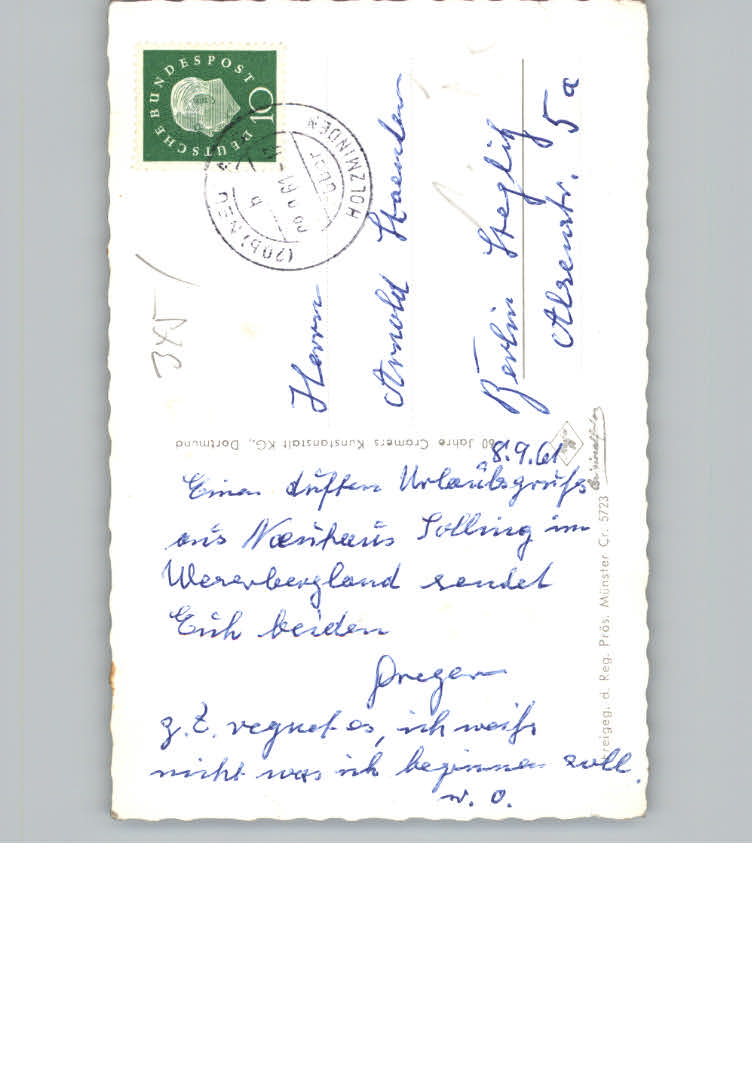 8.9.61
Einen duften Urlaubsgruß
aus Neuhaus Solling im
Weserbergland sendet
Euch beiden
Preger
z.Z. regnet es, ich weiß
nicht was ich beginnen soll.
w. o.
Herrn
Arnold
Berlin Steglitz
Alsenstr. 5a
DEUTSCHE BUNDESPOST
10
(20b) NEU
HOLZMINDEN
3X5
60 Jahre Cramers Kunstanstalt KG., Dortmund
reigeg. d. Reg. Präs. Münster Cr. 5723